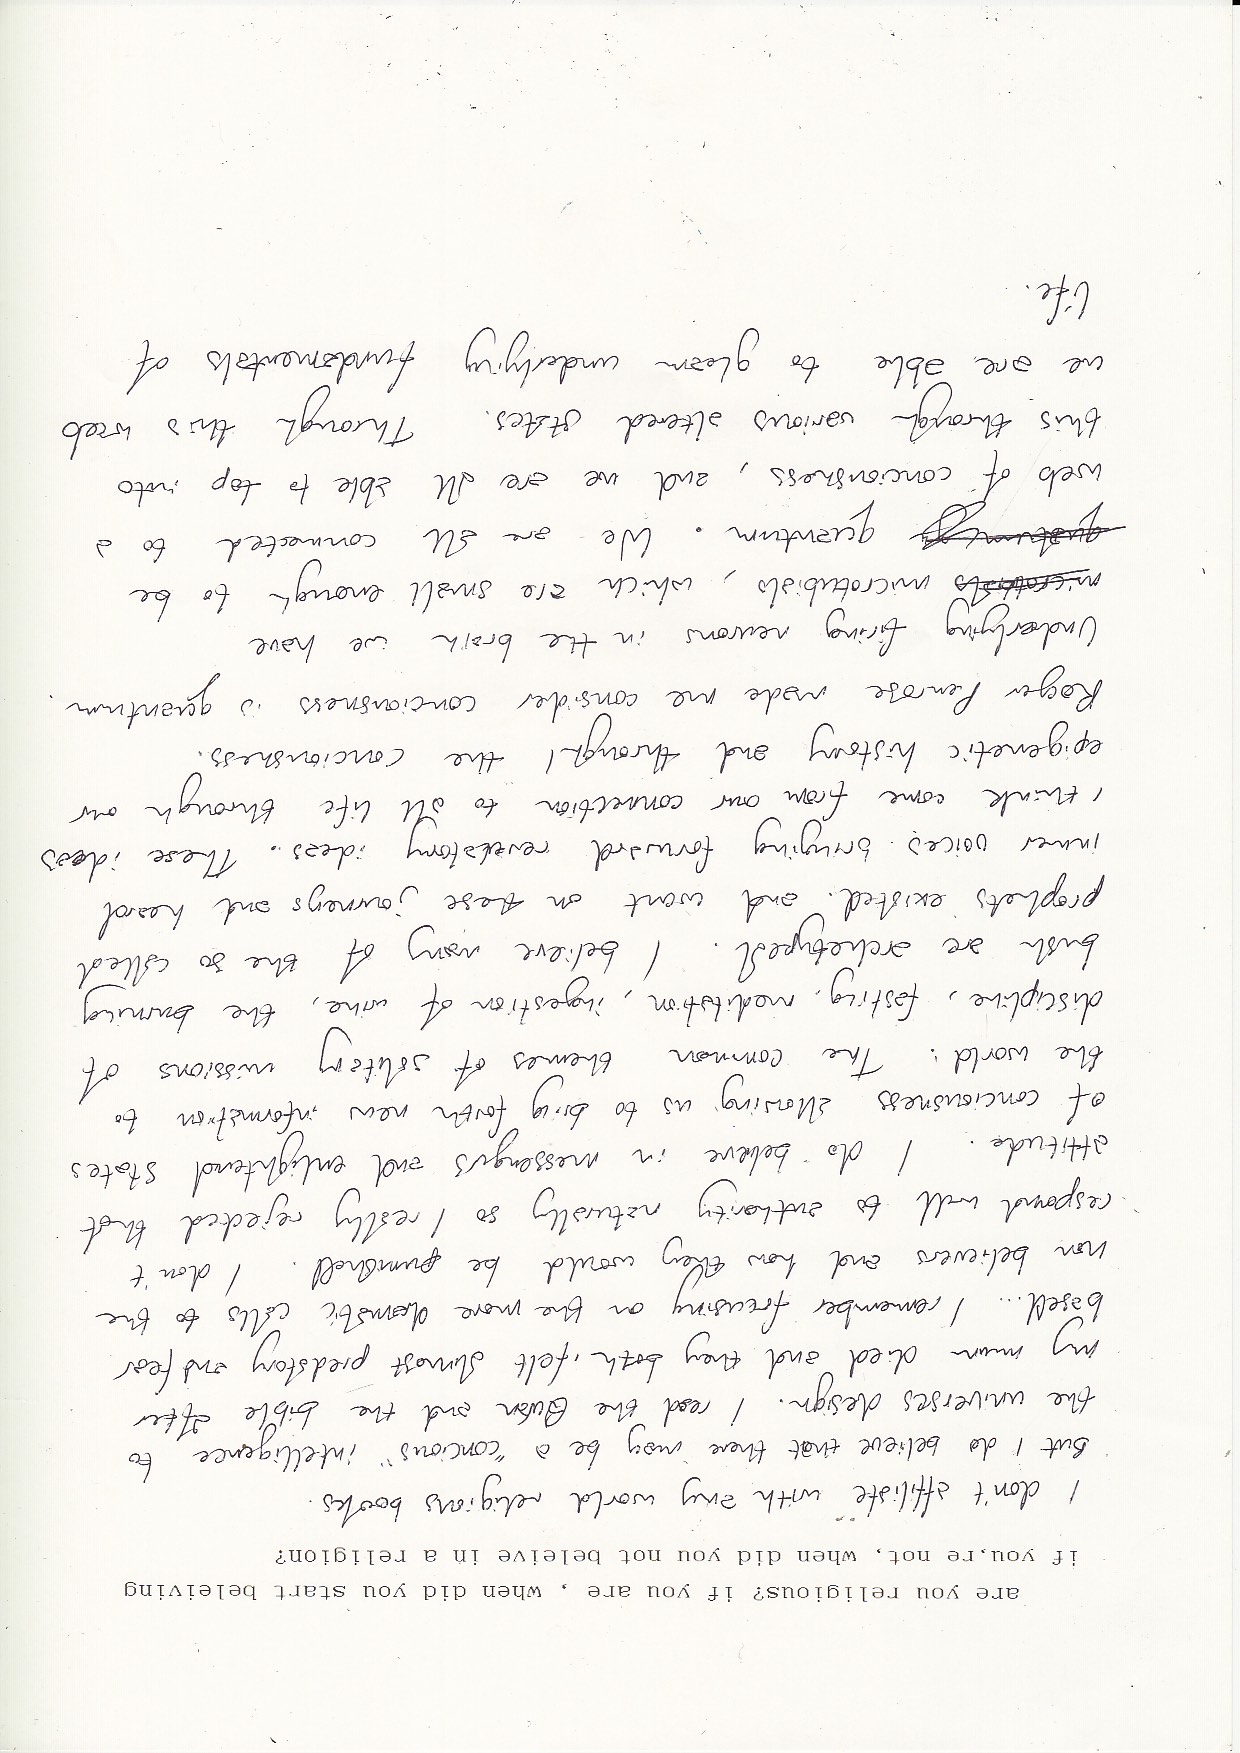 are you religious? if you are , when did you start beleiving
if you,re not, when did you not beleive in a religion?
I don't affiliate with any world religions books.
But I do believe that there may be a "concious" intelligence to
the universes design. I read the Quran and the bible after
my mum died and they both, felt almost predatory and fear
based... I remember focusing on the more dramatic calls to the
non believers and how they would be punished. I don't
respond well to authority naturally so I really rejected that
attitude. I do believe in messengers and enlightend states
of conciousness allowing us to bring forth new information to
the world. The common themes of solitary missions of
discipline, fasting, meditation, ingestion of wine, the burning
bush are archetypeal. I believe many of the so called
prophets existed. and want on these journeys and heard
inner voices bringing forward revelatory ideas. These ideas
I think come from our connection to all life through our
epigenetic history and through the conciousness.
Roger Penrose made me consider conciousness is quantum.
Underlying firing neurons in the brain we have
microtubials, which are small enough to be
quantum. We are all connected to a
web of conciousness, and we are all able to tap into
this through various altered states. Through this web
we are able to glean underlying fundamentals of
life.